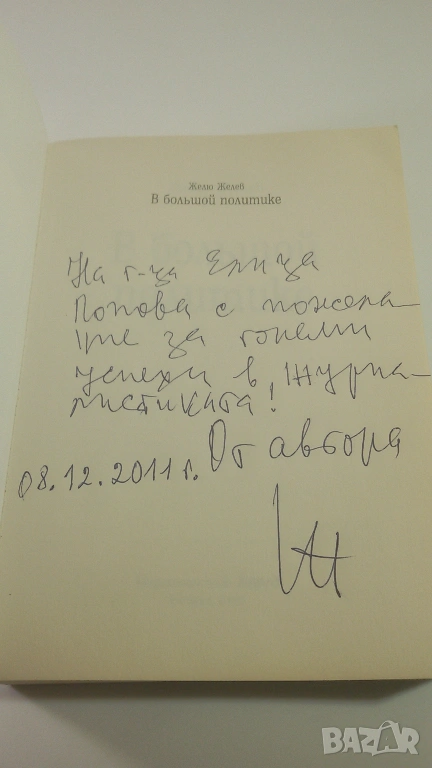 Желю Желев
В большой политике
На г-ца Елица
Попова с пожела-
ние за големи
успехи в журна-
листиката!
От автора
08.12.2011 г.
BAZAR